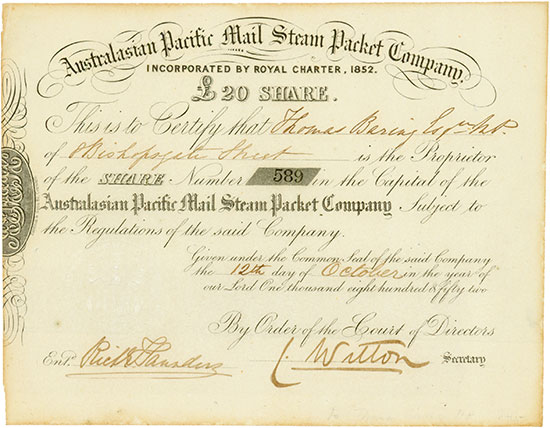 Australasian Pacific Mail Steam Packet Company,
INCORPORATED BY ROYAL CHARTER, 1852.
£20 SHARE.
This is to Certify that Thomas Baring Esqre M.P.
of 8 Bishopsgate Street is the Proprietor
of the SHARE Number 589 in the Capital of the
Australasian Pacific Mail Steam Packet Company Subject to
the Regulations of the said Company.
Given under the Common Seal of the said Company
the 12th day of October in the year of
our Lord One thousand eight hundred & fifty two
By Order of the Court of Directors
Entd. Richd Saunders C. Witton Secretary